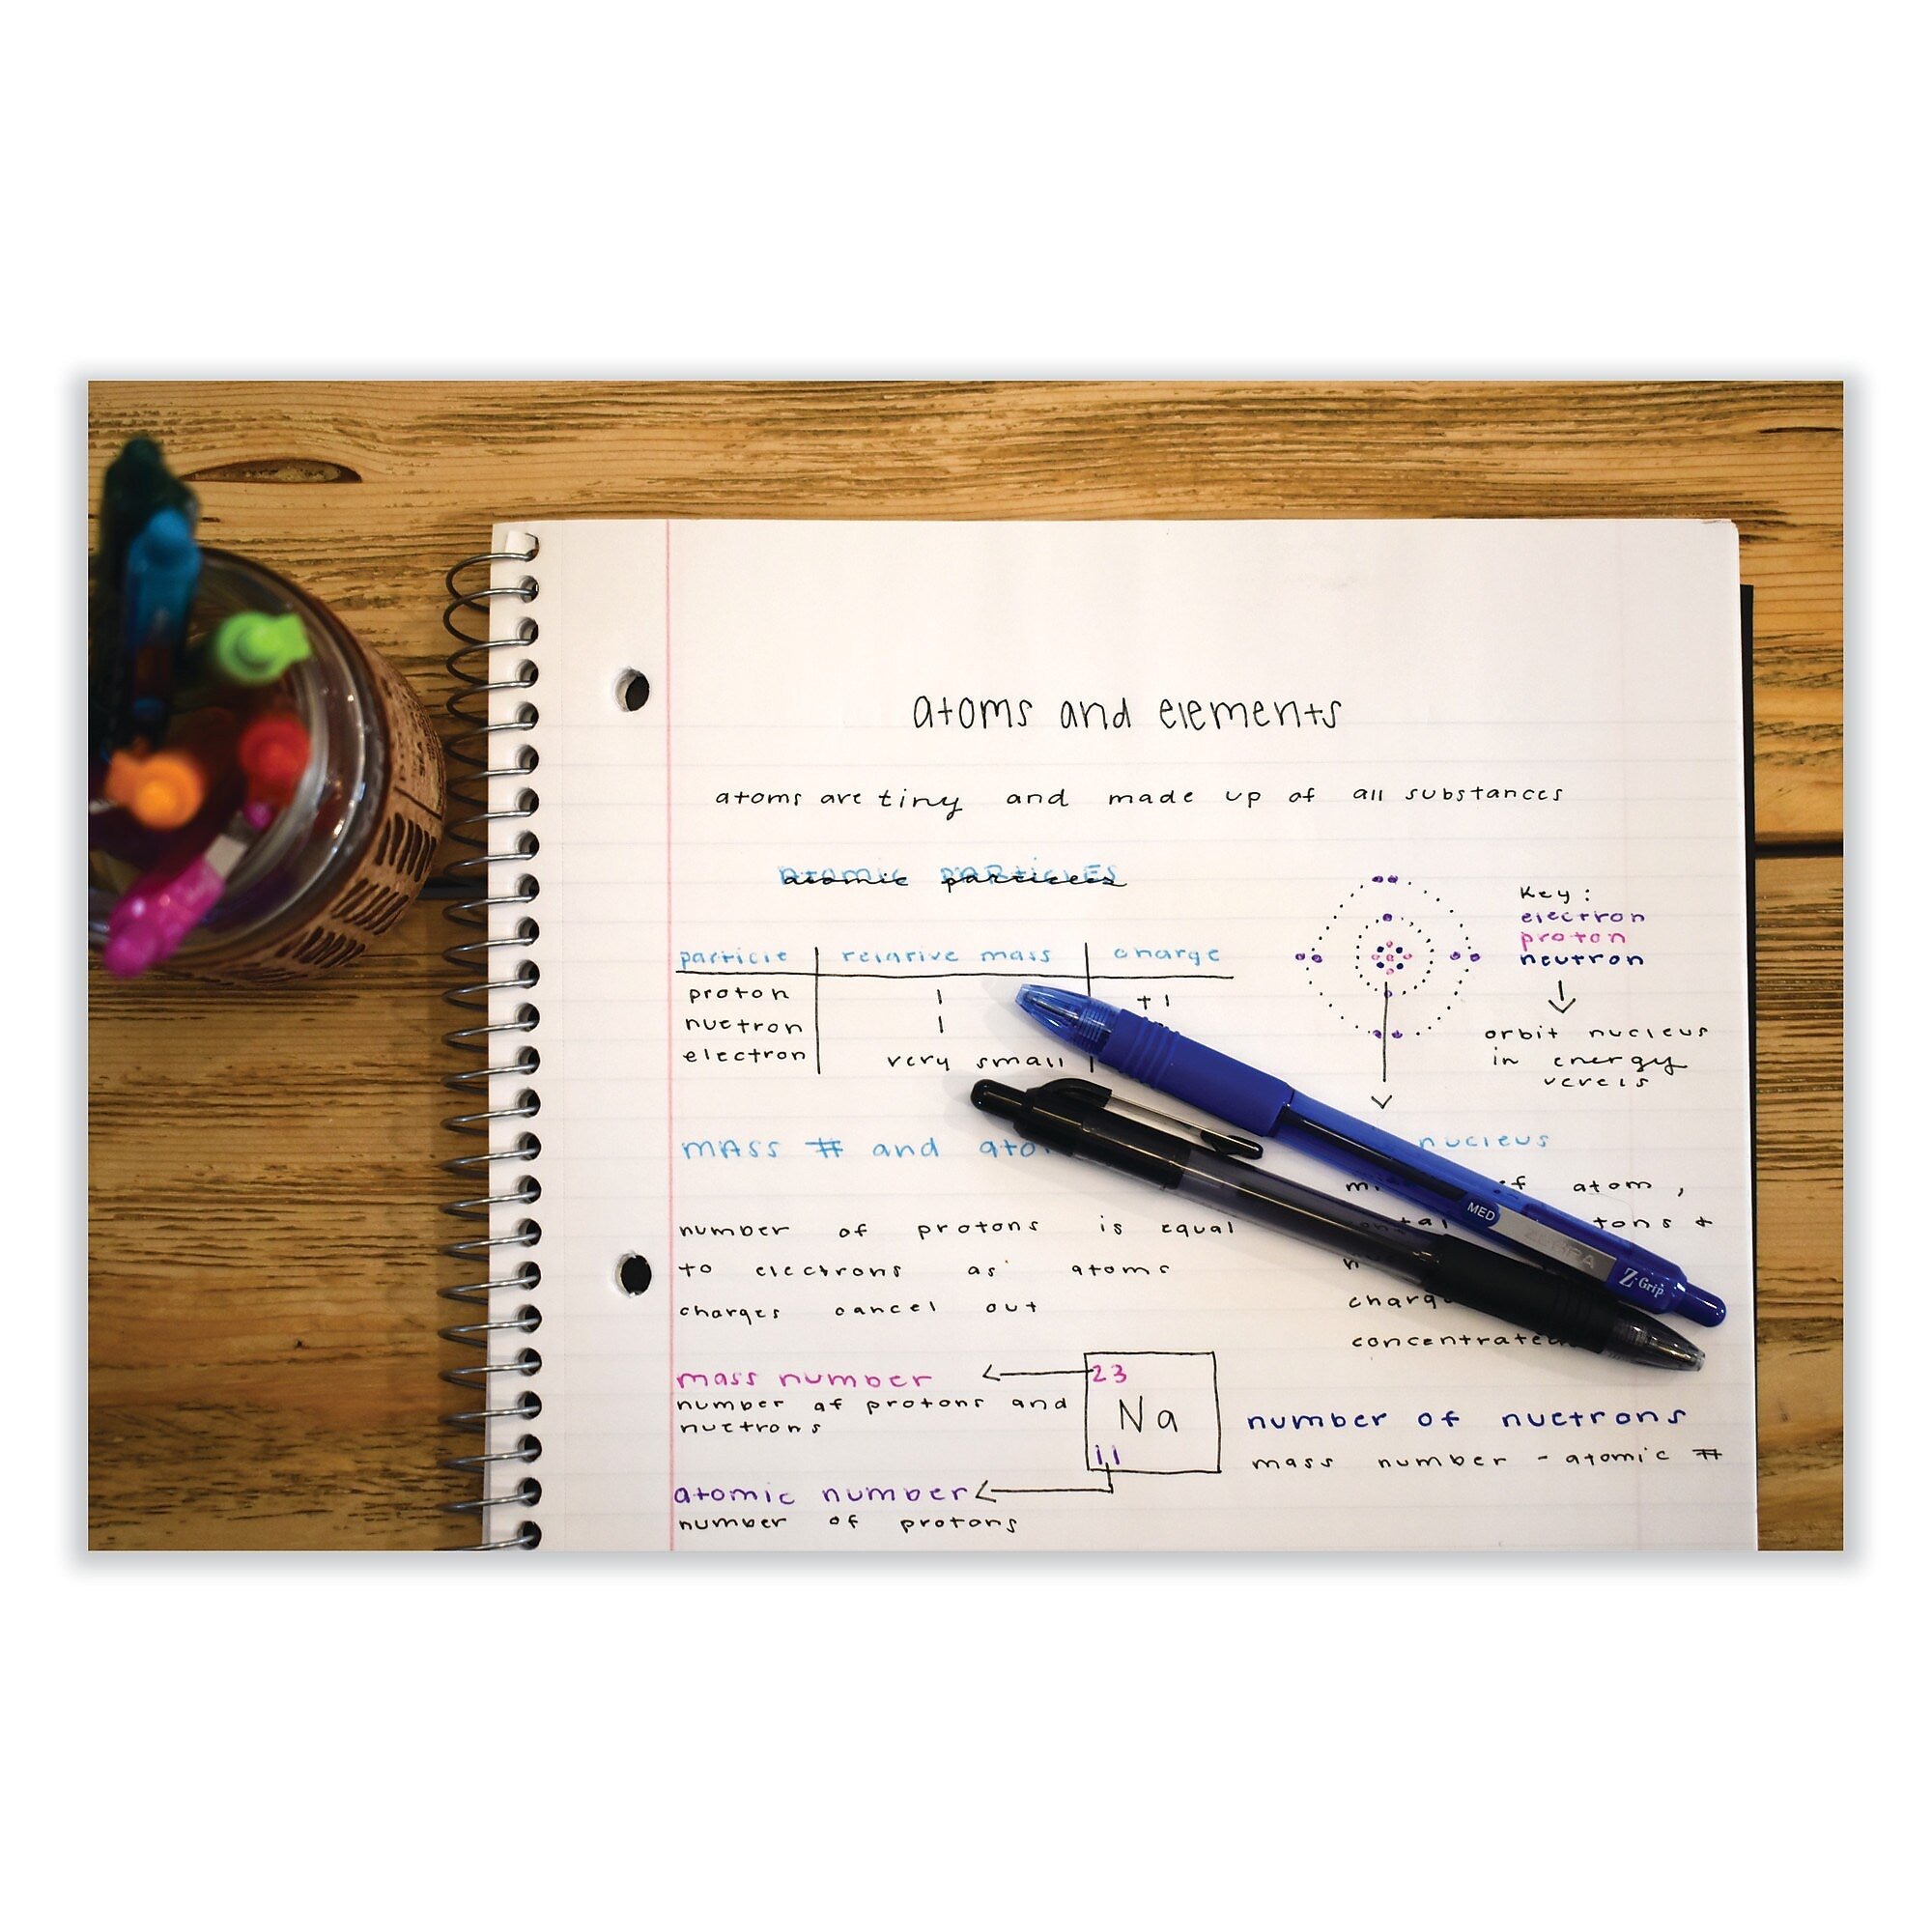 atoms and elements
atoms are tiny and made up of all substances
atomic particles
particle relative mass charge
proton 1 +1
nuetron 1
electron very small
Key:
electron
proton
neutron
orbit nucleus
in energy
levels
mass # and
nucleus
of atom,
number of protons is equal
to electrons as atoms
charges cancel out
concentrated
mass number
number of protons and
nuetrons
23
Na
11
atomic number
number of protons
number of nuetrons
mass number - atomic #
MED
ZEBRA
Z-Grip